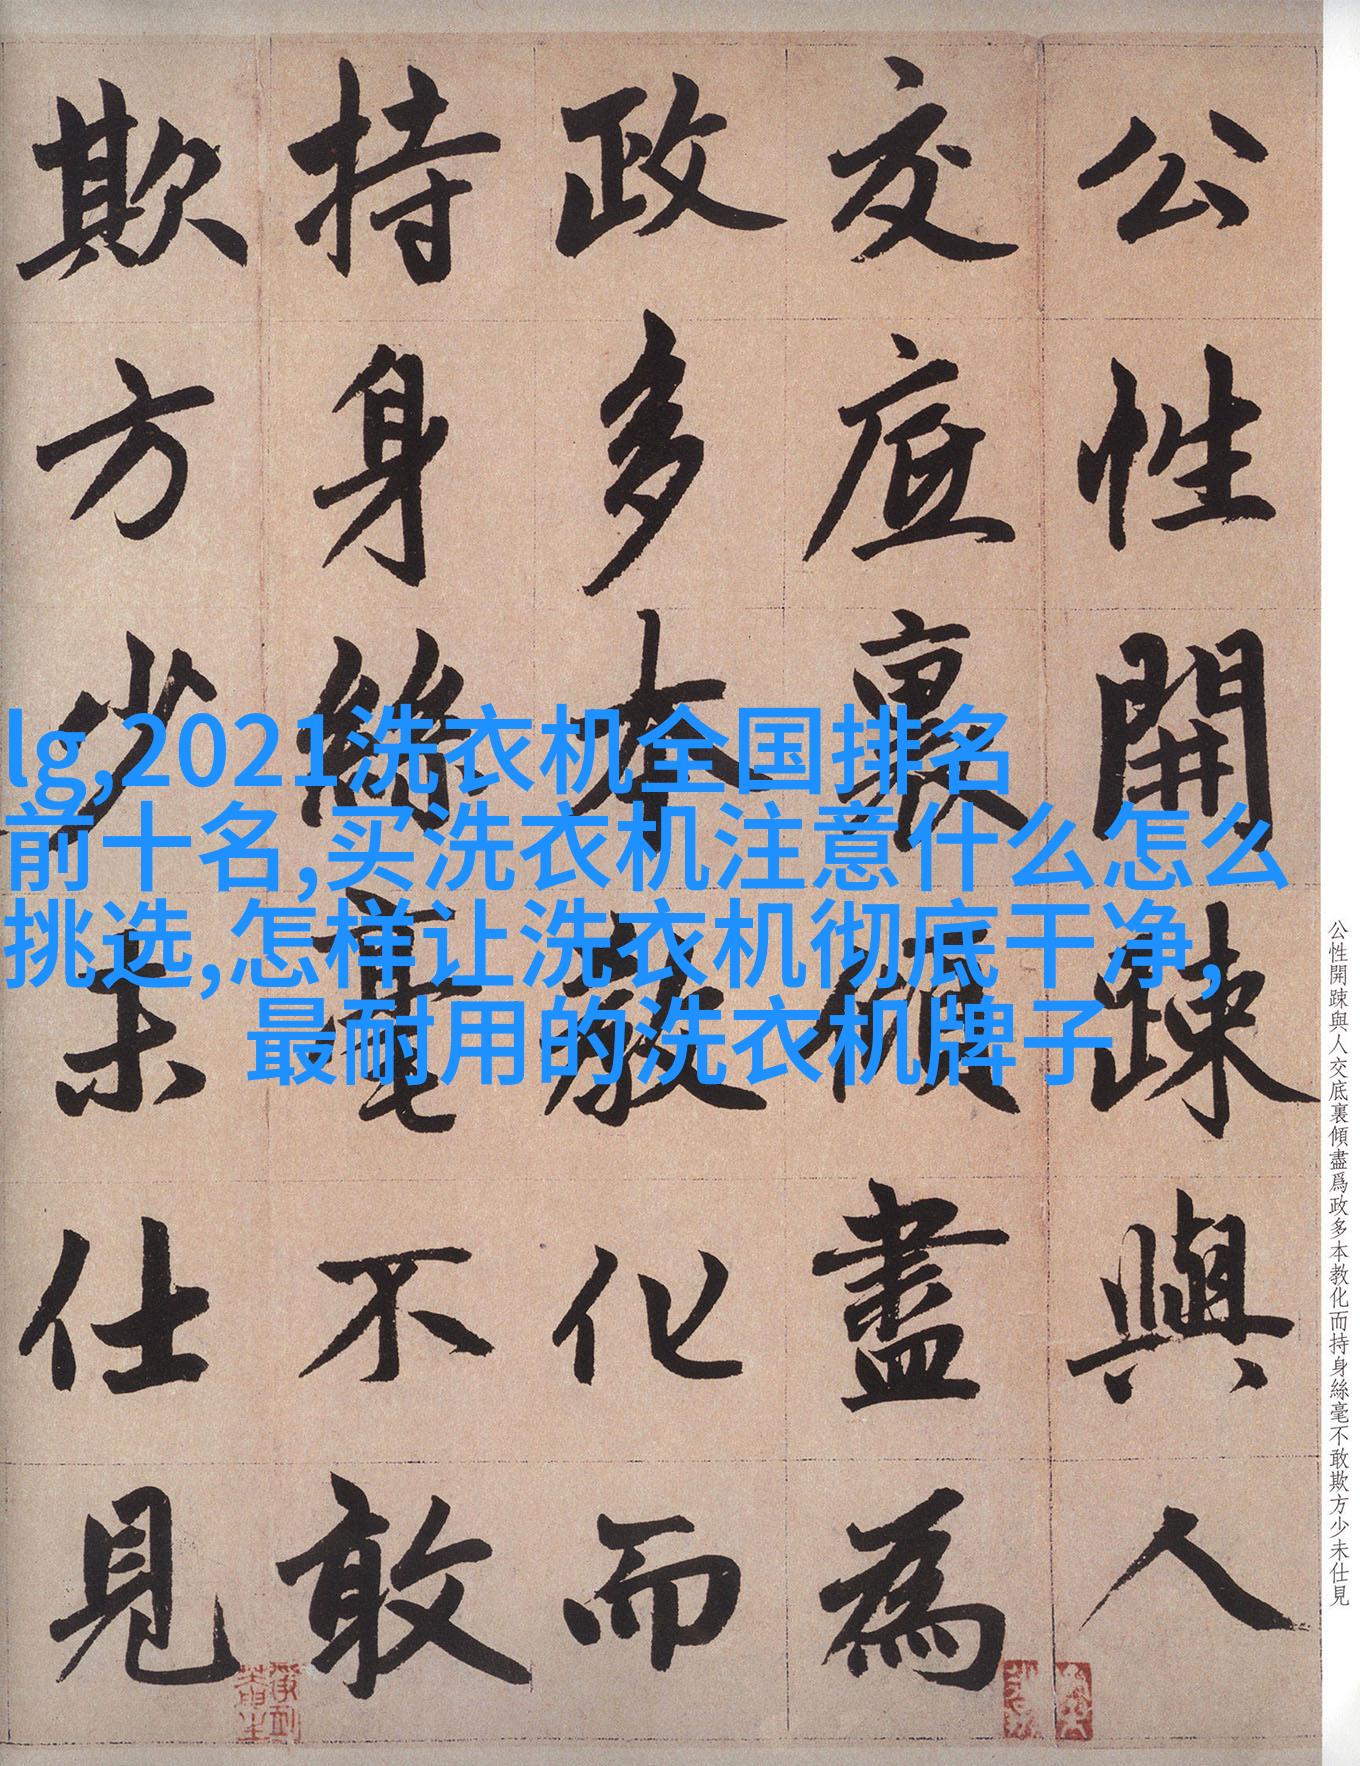 公性開踈與人
交底裏傾盡為
政多本教化而
持身絲毫不敢
欺方少未仕見
lg,2021洗衣机全国排名
前十名,买洗衣机注意什么怎么
挑选,怎样让洗衣机彻底干净,
最耐用的洗衣机牌子
公性開踈與人交底裏傾盡爲政多本教化而持身絲毫不敢欺方少未仕見